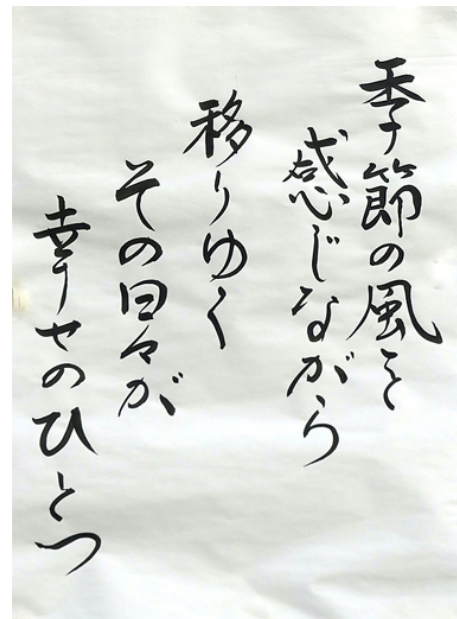 季節の風を
感じながら
移りゆく
その日々が
幸せのひとつ